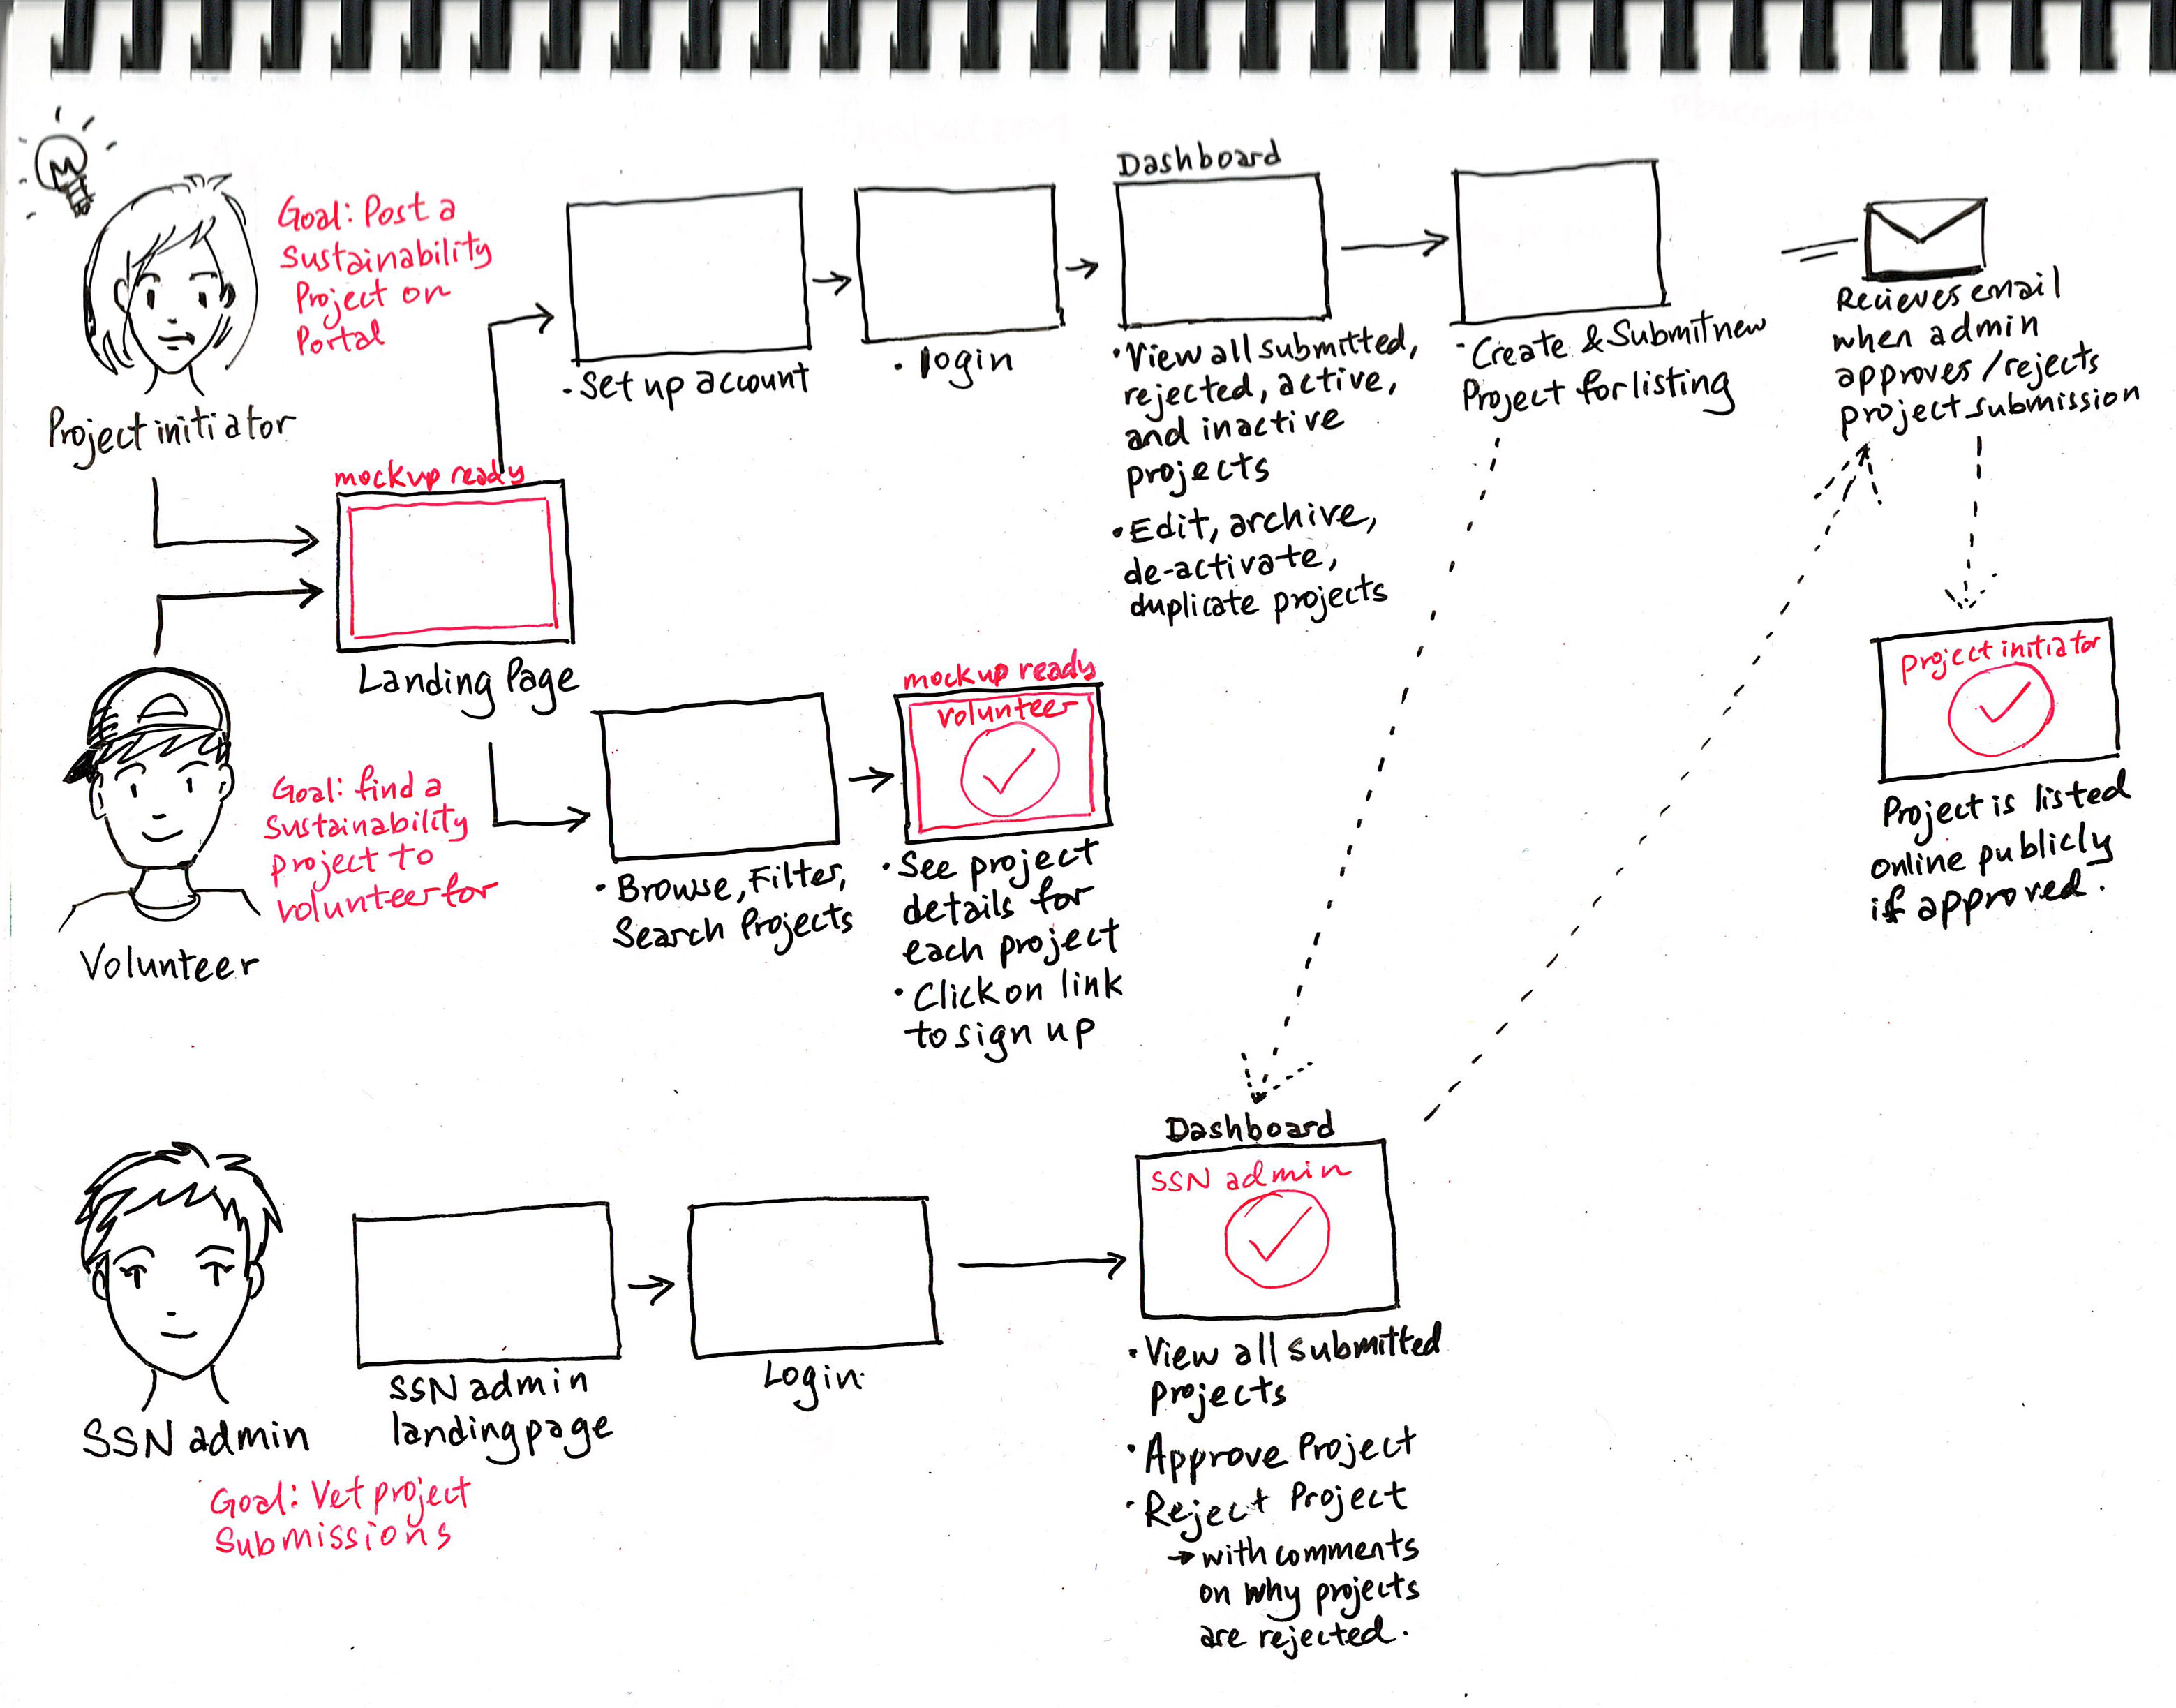 Goal: Post a
Sustainability
Project on
Portal
Project initiator
mockup ready
Landing Page
• Set up account
• login
Dashboard
• View all submitted,
rejected, active,
and inactive
projects
• Edit, archive,
de-activate,
duplicate projects
• Create & Submit new
Project for listing
Recieves email
when admin
approves/rejects
project submission
project initiator
Project is listed
online publicly
if approved.
Goal: find a
Sustainability
project to
volunteer for
Volunteer
• Browse, Filter,
Search Projects
mockup ready
volunteer
• See project
details for
each project
• Click on link
to sign up
SSN admin
Goal: Vet project
Submissions
SSN admin
landing page
Login
Dashboard
SSN admin
• View all submitted
projects
• Approve Project
• Reject Project
→ with comments
on why projects
are rejected.